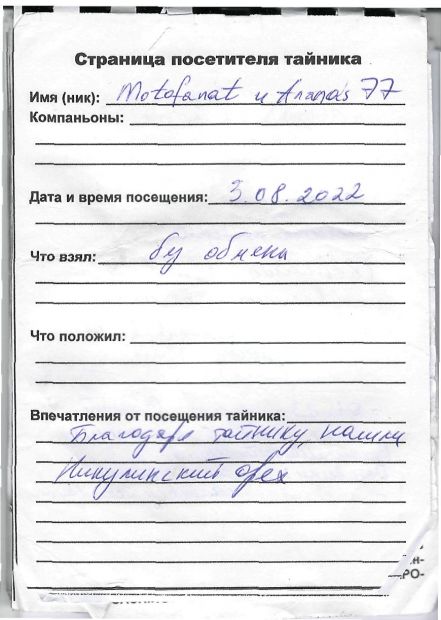 Страница посетителя тайника
Имя (ник): Motofanat и Ananas 77
Компаньоны:
Дата и время посещения: 3.08.2022
Что взял: бу обмена
Что положил:
Впечатления от посещения тайника:
Благодаря тайнику, нашли
Никулинский орех